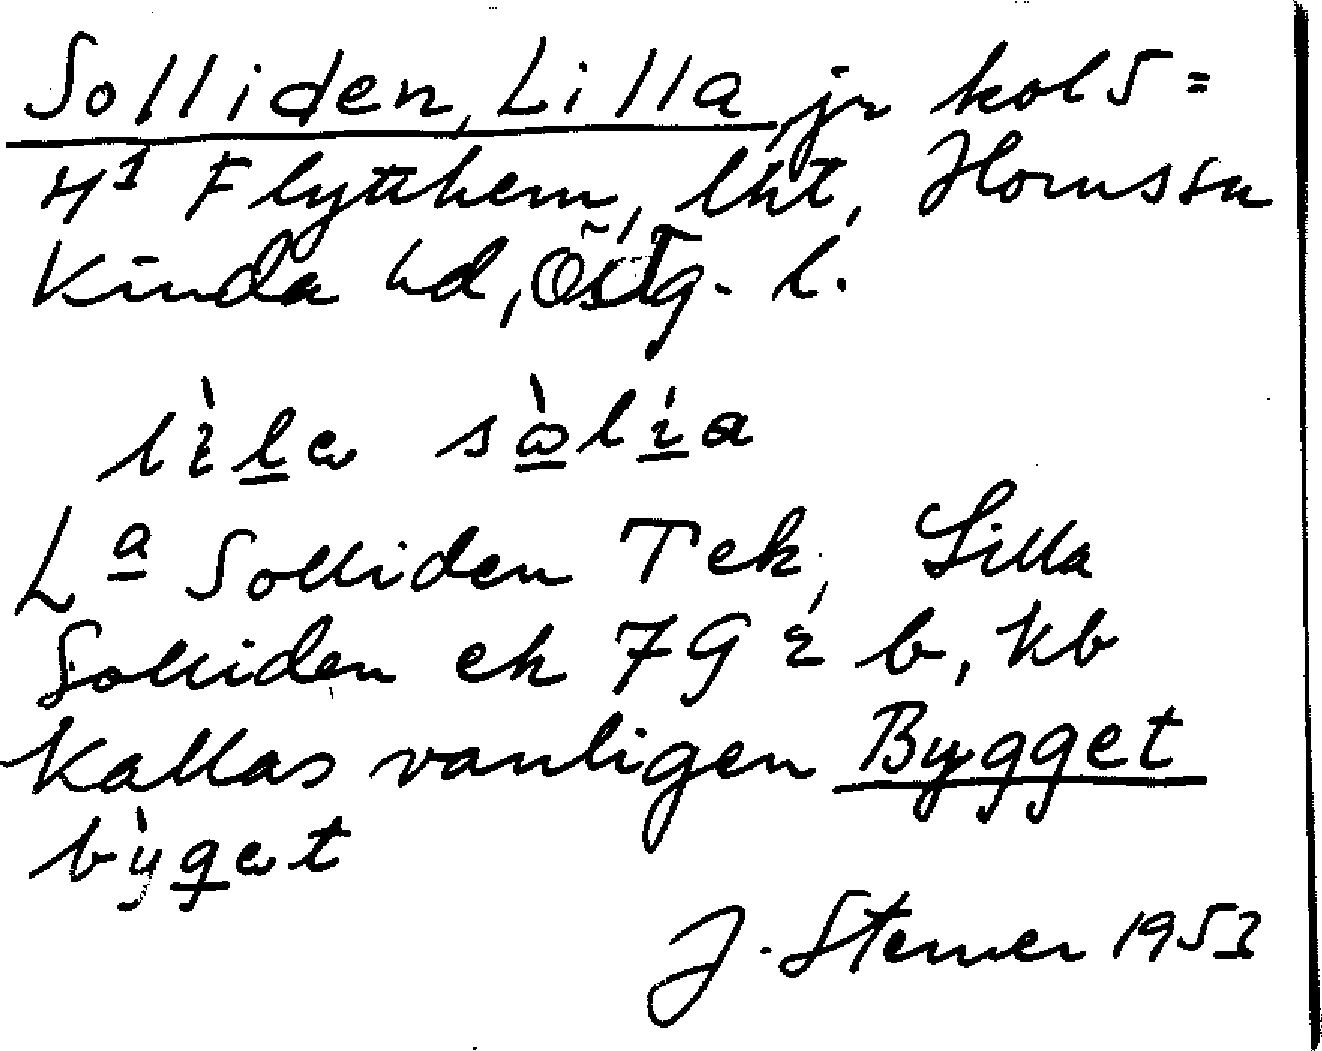 Solliden, Lilla, jr kols=
4¹ Flytthem, lht, Horns sn
Kinda hd, Östg. l.
lìla sòlía
Lª Solliden Tek, Lilla
Solliden ek 79 i b, Kb
Kallas vanligen Bygget
bỳgat
J. Sterner 1953